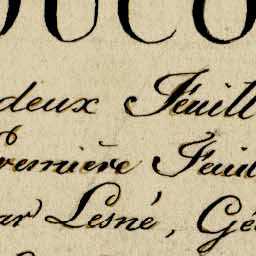 OUCO
deux Feuill
Première Feuil
ar Lesné, Gé